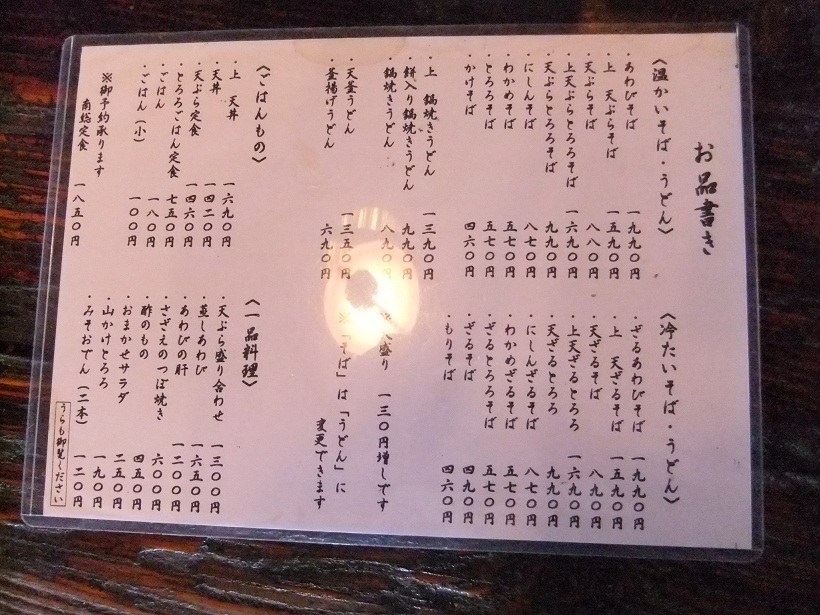 お品書き
〈温かいそば・うどん〉
・あわびそば 一九九〇円
・上 天ぷらそば 一五九〇円
・天ぷらそば 八八〇円
・上天ぷらとろろそば 一六九〇円
・天ぷらとろろそば 九九〇円
・にしんそば 八七〇円
・わかめそば 五七〇円
・とろろそば 五七〇円
・かけそば 四六〇円
・上 鍋焼きうどん 一三九〇円
・餅入り鍋焼きうどん 九九〇円
・鍋焼きうどん 八九〇円
・天釜うどん 一三五〇円
・釜揚げうどん 六九〇円
〈冷たいそば・うどん〉
・ざるあわびそば 一九九〇円
・上 天ざるそば 一五九〇円
・天ざるそば 八九〇円
・上天ざるとろろ 一六九〇円
・天ざるとろろ 九九〇円
・にしんざるそば 八七〇円
・わかめざるそば 五七〇円
・ざるとろろそば 五七〇円
・ざるそば 四九〇円
・もりそば 四六〇円
盛り 一三〇円増しです
※「そば」は「うどん」に
変更できます
〈ごはんもの〉
・上 天丼 一六九〇円
・天丼 一四二〇円
・天ぷら定食 一四六〇円
・とろろごはん定食 七五〇円
・ごはん 一八〇円
・ごはん（小） 一〇〇円
※御予約承ります
南総定食 一八五〇円
〈一品料理〉
・天ぷら盛り合わせ 一三〇〇円
・蒸しあわび 一六五〇円
・あわびの肝 一二〇〇円
・さざえのつぼ焼き 六〇〇円
・酢のもの 四五〇円
・おまかせサラダ 二五〇円
・山かけとろろ 一九〇円
・みそおでん（二本） 一二〇円
うらも御覧ください